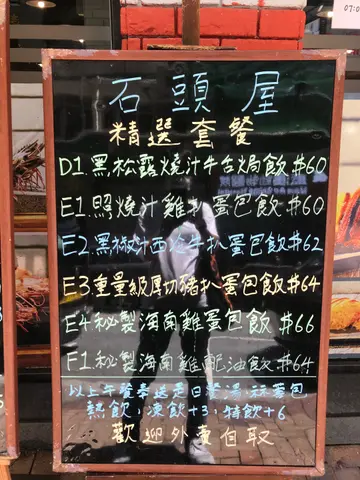 07:0
石頭屋
精選套餐
D1.黑松露燒汁牛舌焗飯 #60
E1.照燒汁雞扒蛋包飯 #60
E2.黑椒汁西冷牛扒蛋包飯 #62
E3重量級厚切豬扒蛋包飯 #64
E4秘製海南雞蛋包飯 #66
F1.秘製海南雞配油飯 #64
以上午餐奉送是日餐湯,蒜蓉包
熱飲,凍飲+3,特飲+6
歡迎外賣自取